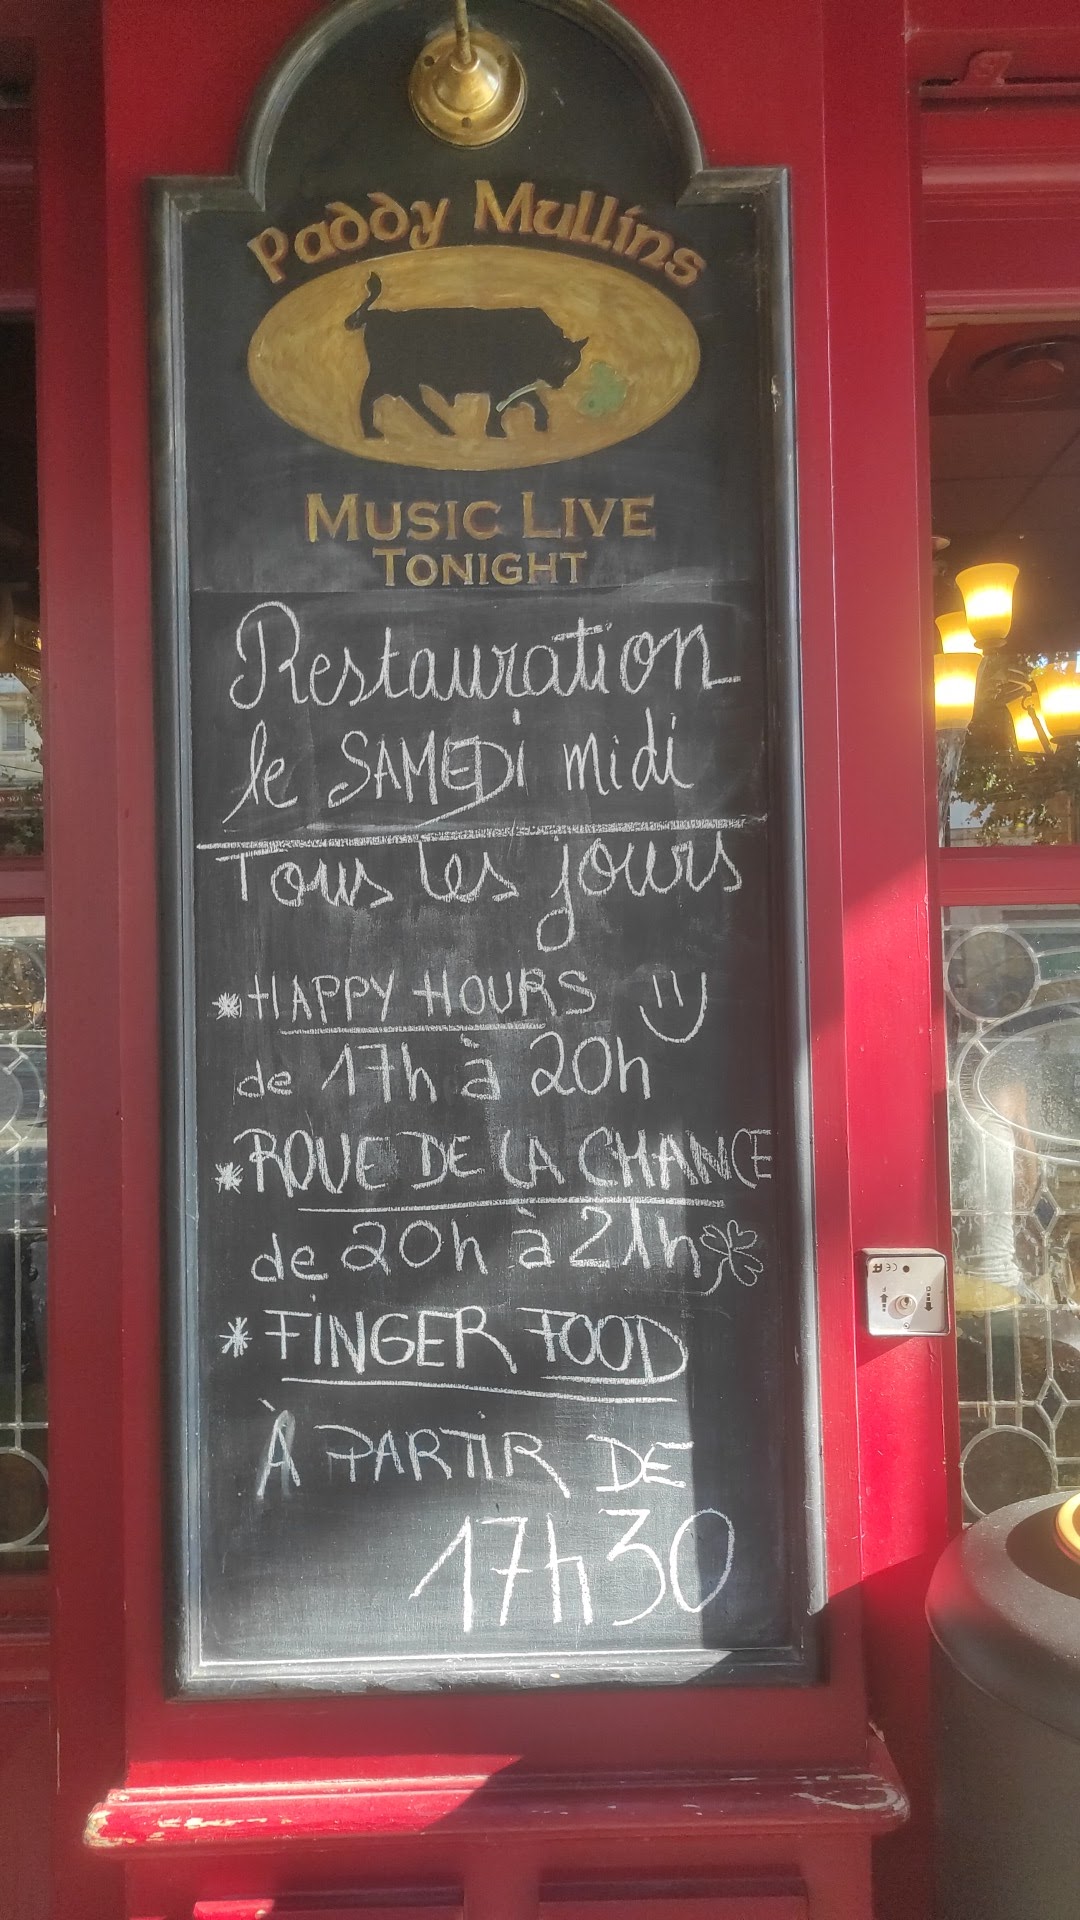 Paddy Mullins
MUSIC LIVE
TONIGHT
Restauration
le SAMEDi midi
Tous les jours
* HAPPY HOURS
de 17h à 20h
* ROUE DE LA CHANCE
de 20h à 21h
* FiNGER FOOD
À PARTiR DE
17h30